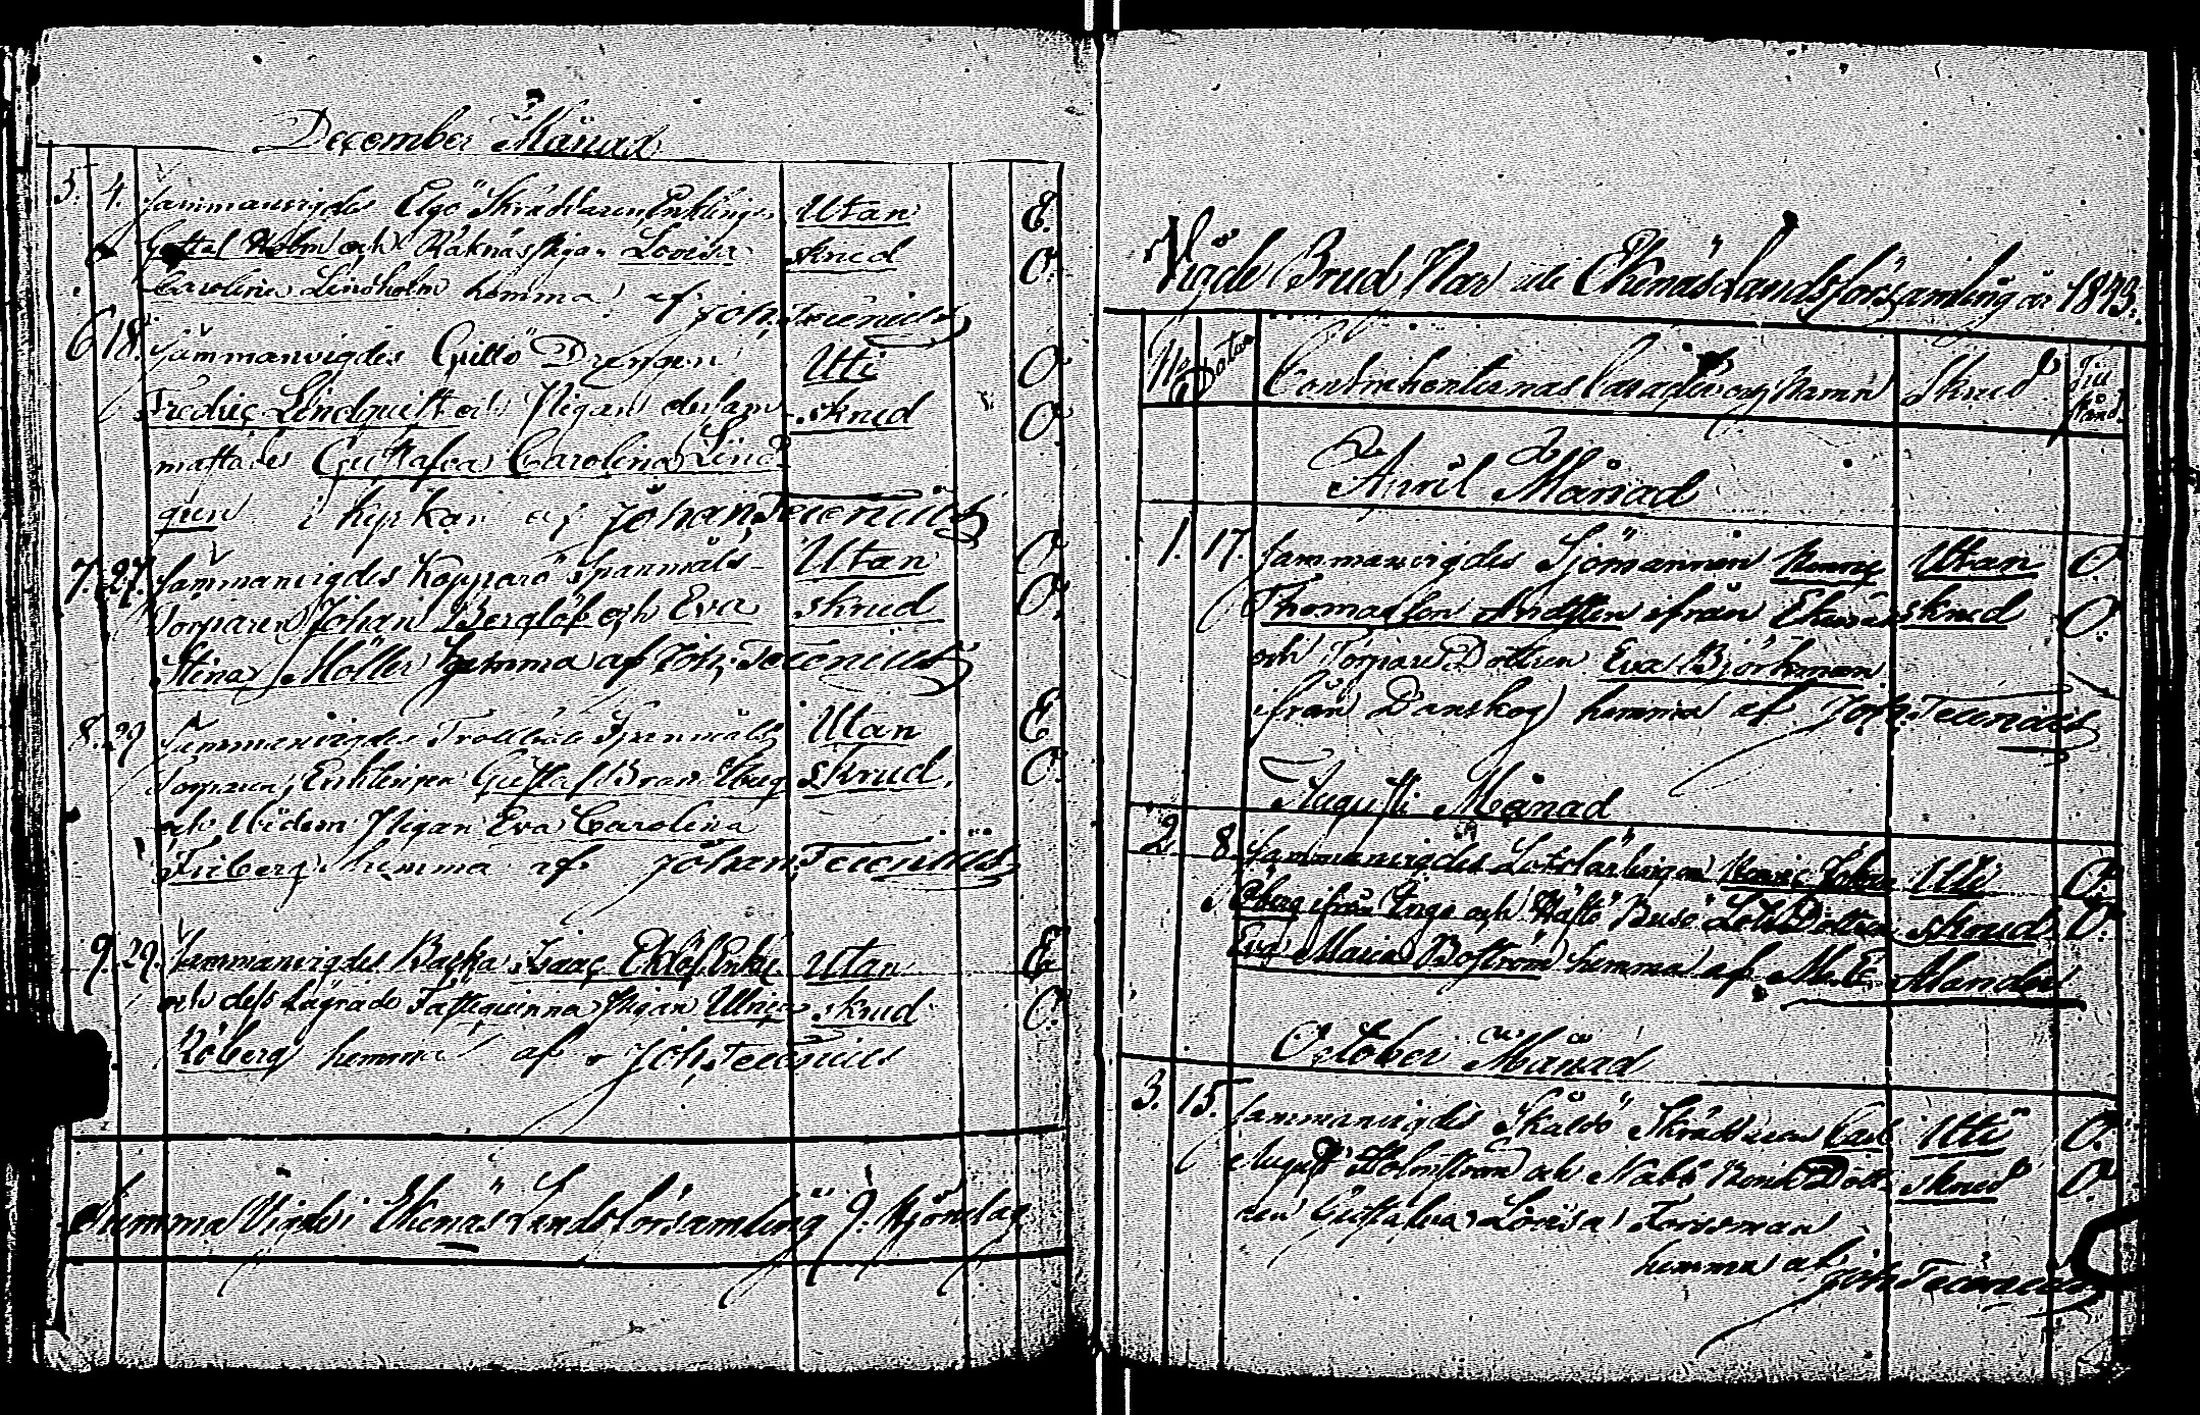 December Månad
5. 4. Sammanvigdes Elgö Skräddaren, Enklingen Utan E.
Gustaf Holm och Råknäs Pigan Lovisa skrud O.
Carolina Lindholm hemma af Joh. Tecenius
6 18. Sammanvigdes Gillö Drengen Uti O
Fredric Lindquist och Pigan dersam- skrud O
mastädes Gustafva Carolina Lind-
qvin i kyrkan af Johan Tecenius
7. 27. Sammanvigdes Kopparö Spannmåls- Utan O
Torparen Johan Berglöf och Eva skrud O.
Stina Möller hemma af Joh. Tecenius
8. 29 Sammanvigdes Trollböle Spanmåls Utan E
Torparen, Enklingen Gustaf Brunberg skrud. O.
och Pigan Eva Carolina
Friberg hemma af Johan Tecenius
9. 29. Sammanvigdes Backa Isaac Eklöf Enkl. Utan E
och dess Lägrade Pigan Ulrica skrud O.
Röberg hemma af Joh. Tecenius
Summa Vigde i Ekenäs Landsförsamling 9. Hjonelag
Vigde Brud Par uti Ekenäs Landsförsamling år 1843.
No Datum Contrahenternas Caracter och Namn Skrud Tillstånd
April Månad
1. 17. Sammanvigdes Sjömannen Henric Utan O
Thomasson ifrån Ekenäs skrud O.
och Torpare Dottren Eva Björkman
ifrån Danskog hemma af Joh. Tecenius
Augusti Månad
2. 8. Sammanvigdes Henric Johan Uti O.
Öberg ifrån Ingo och Busö Lots Dottren skrud O.
Eva Maria Boström hemma af M. E. Alander
October Månad
3. 15. Sammanvigdes Skåldö Skräddaren Carl Uti O.
August Holmström och Bonde Dott- skrud O
ren Gustafva Lovisa Forsman
hemma af Joh Tecenius